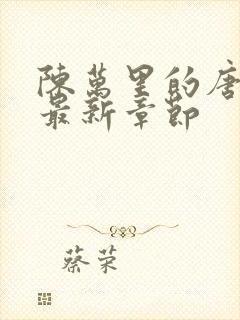 陳萬里的唐
最新章節
蔡荣